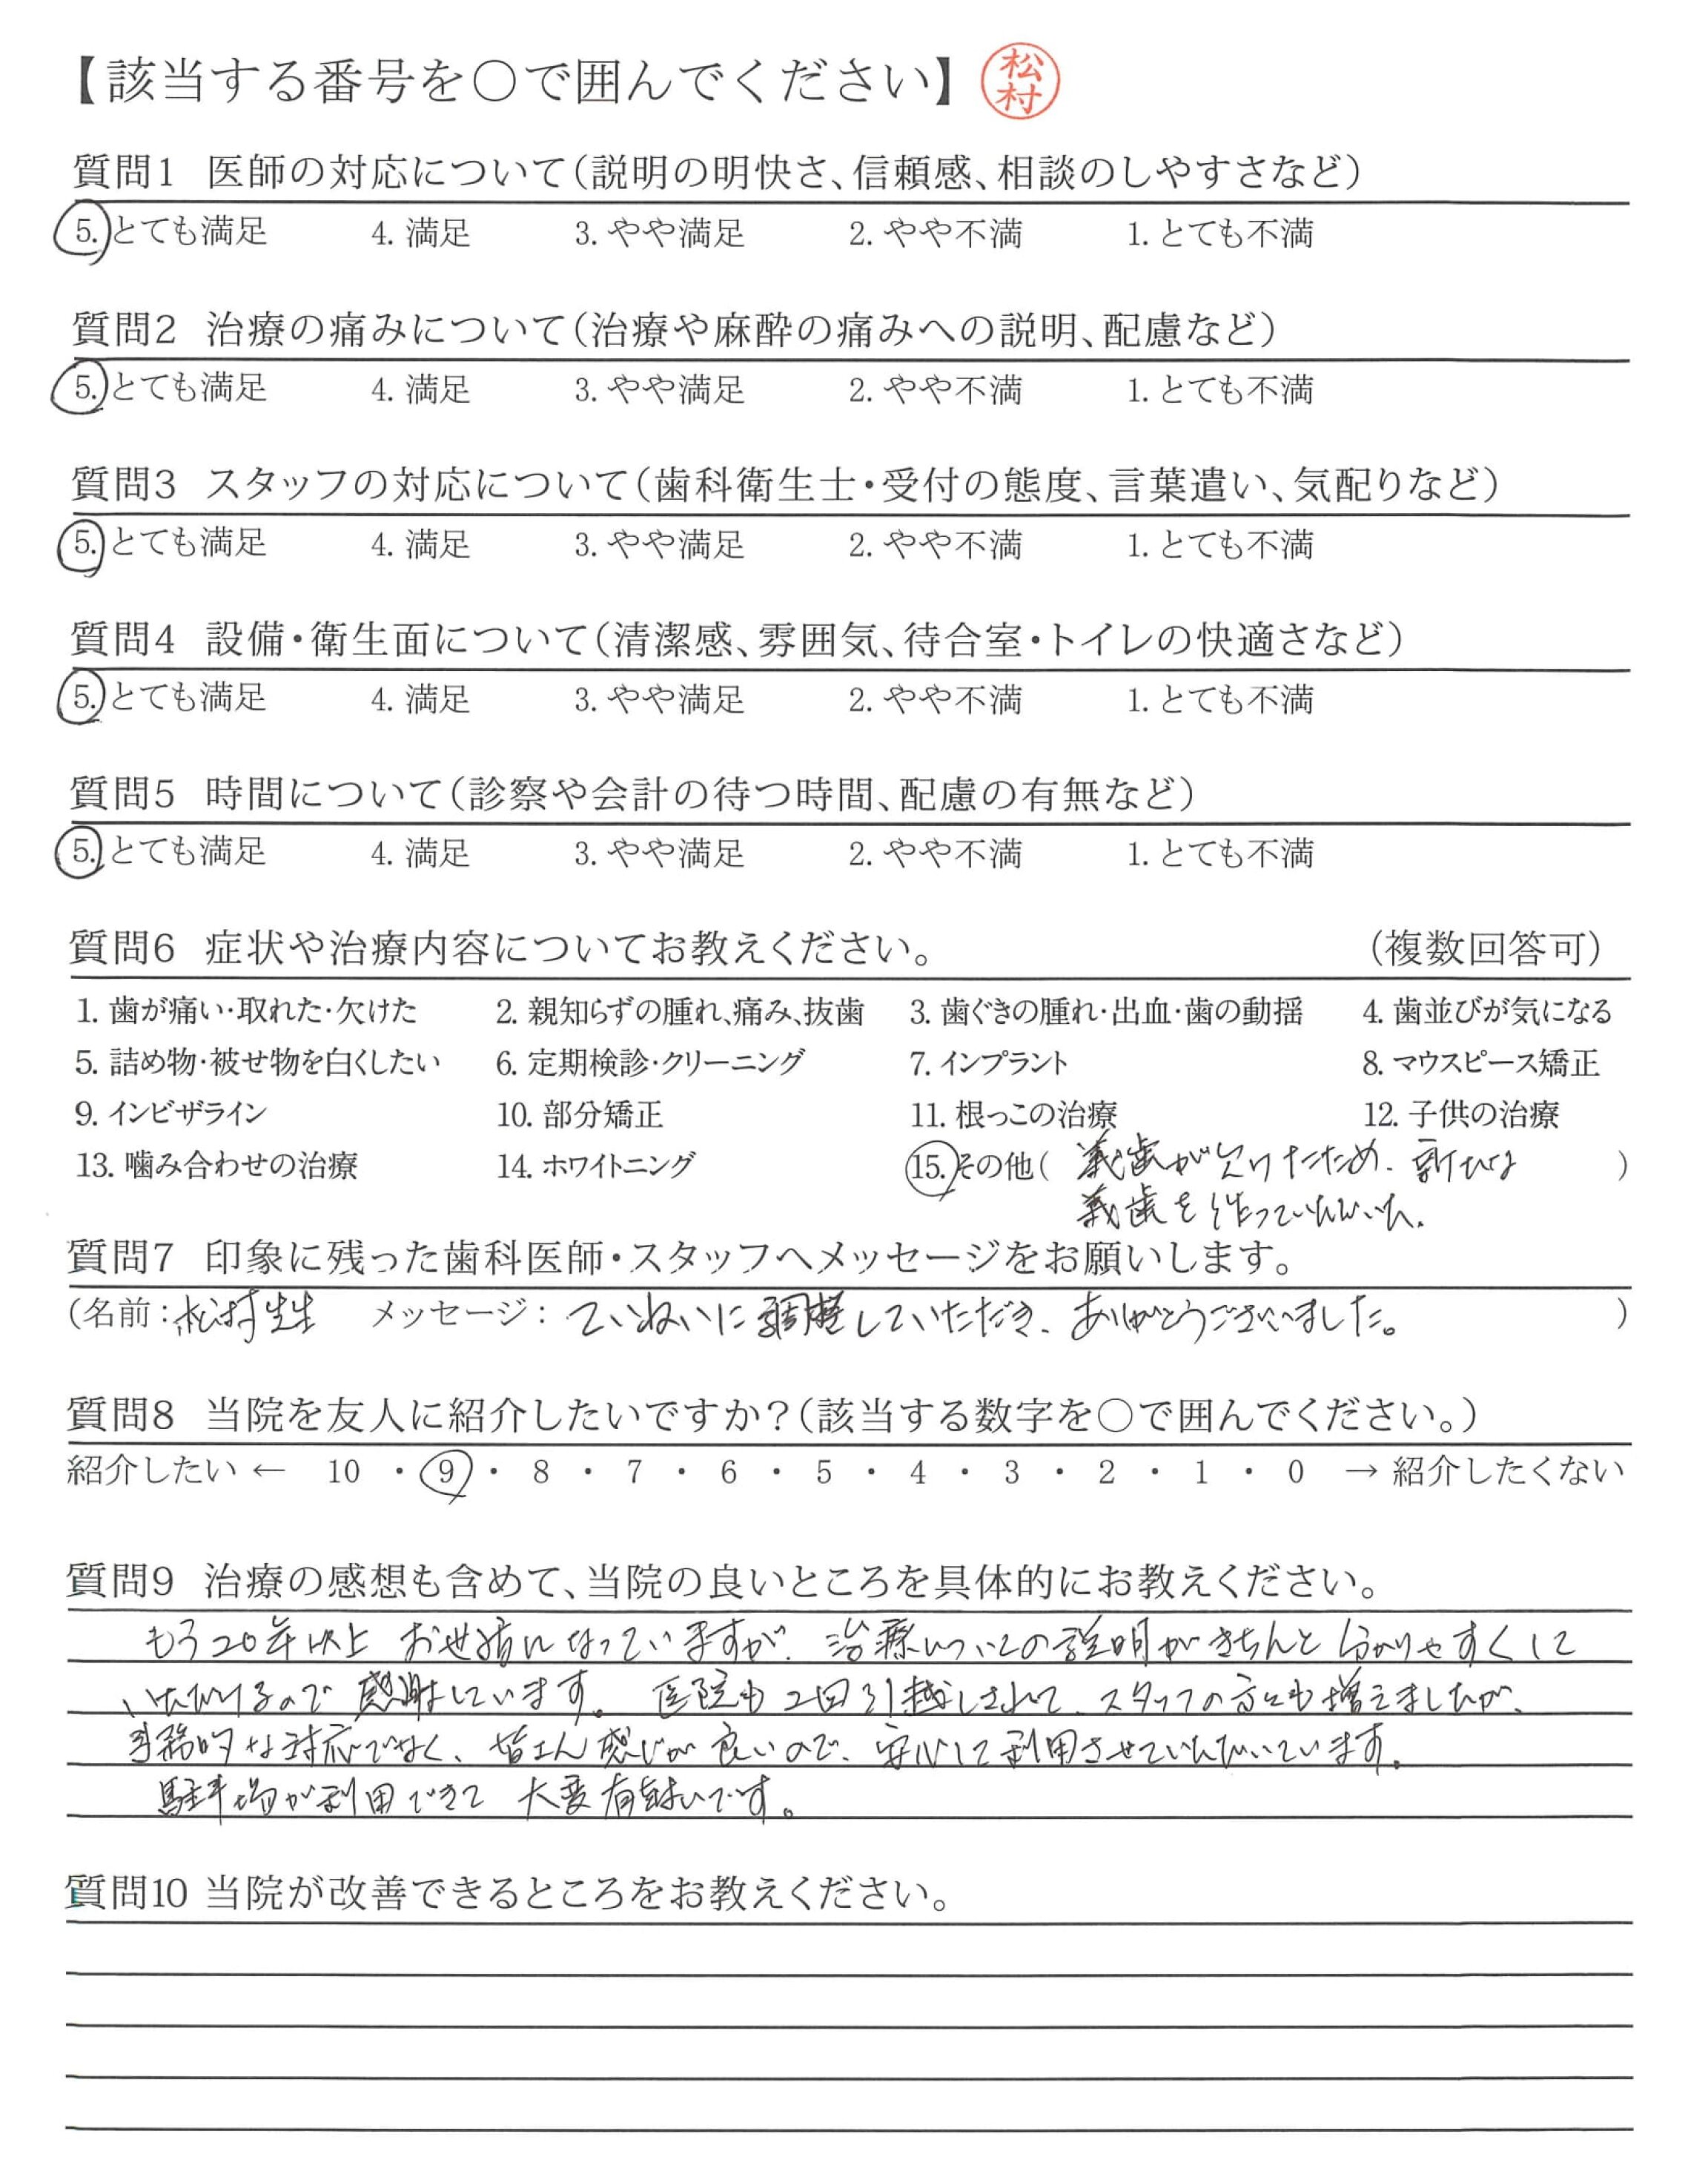 【該当する番号を○で囲んでください】 松村
質問1 医師の対応について(説明の明快さ、信頼感、相談のしやすさなど)
5. とても満足 4. 満足 3. やや満足 2. やや不満 1. とても不満
質問2 治療の痛みについて(治療や麻酔の痛みへの説明、配慮など)
5. とても満足 4. 満足 3. やや満足 2. やや不満 1. とても不満
質問3 スタッフの対応について(歯科衛生士・受付の態度、言葉遣い、気配りなど)
5. とても満足 4. 満足 3. やや満足 2. やや不満 1. とても不満
質問4 設備・衛生面について(清潔感、雰囲気、待合室・トイレの快適さなど)
5. とても満足 4. 満足 3. やや満足 2. やや不満 1. とても不満
質問5 時間について(診察や会計の待つ時間、配慮の有無など)
5. とても満足 4. 満足 3. やや満足 2. やや不満 1. とても不満
質問6 症状や治療内容についてお教えください。 (複数回答可)
1. 歯が痛い・取れた・欠けた 2. 親知らずの腫れ、痛み、抜歯 3. 歯ぐきの腫れ・出血・歯の動揺 4. 歯並びが気になる
5. 詰め物・被せ物を白くしたい 6. 定期検診・クリーニング 7. インプラント 8. マウスピース矯正
9. インビザライン 10. 部分矯正 11. 根っこの治療 12. 子供の治療
13. 噛み合わせの治療 14. ホワイトニング 15. その他( 義歯が欠けたため、新たな )
義歯を作っていただいた。
質問7 印象に残った歯科医師・スタッフへメッセージをお願いします。
(名前:松村先生 メッセージ: ていねいに調整していただき、ありがとうございました。 )
質問8 当院を友人に紹介したいですか?(該当する数字を○で囲んでください。)
紹介したい ← 10 ・ 9 ・ 8 ・ 7 ・ 6 ・ 5 ・ 4 ・ 3 ・ 2 ・ 1 ・ 0 → 紹介したくない
質問9 治療の感想も含めて、当院の良いところを具体的にお教えください。
もう20年以上 お世話になっていますが、治療についての説明がきちんと分かりやすくして
いただけるので 感謝しています。 医院も2回引越しされて、スタッフの方々も増えましたが、
事務的な対応でなく、皆さん感じが良いので、安心して利用させていただいています。
駐車場が利用できて 大変有難いです。
質問10 当院が改善できるところをお教えください。